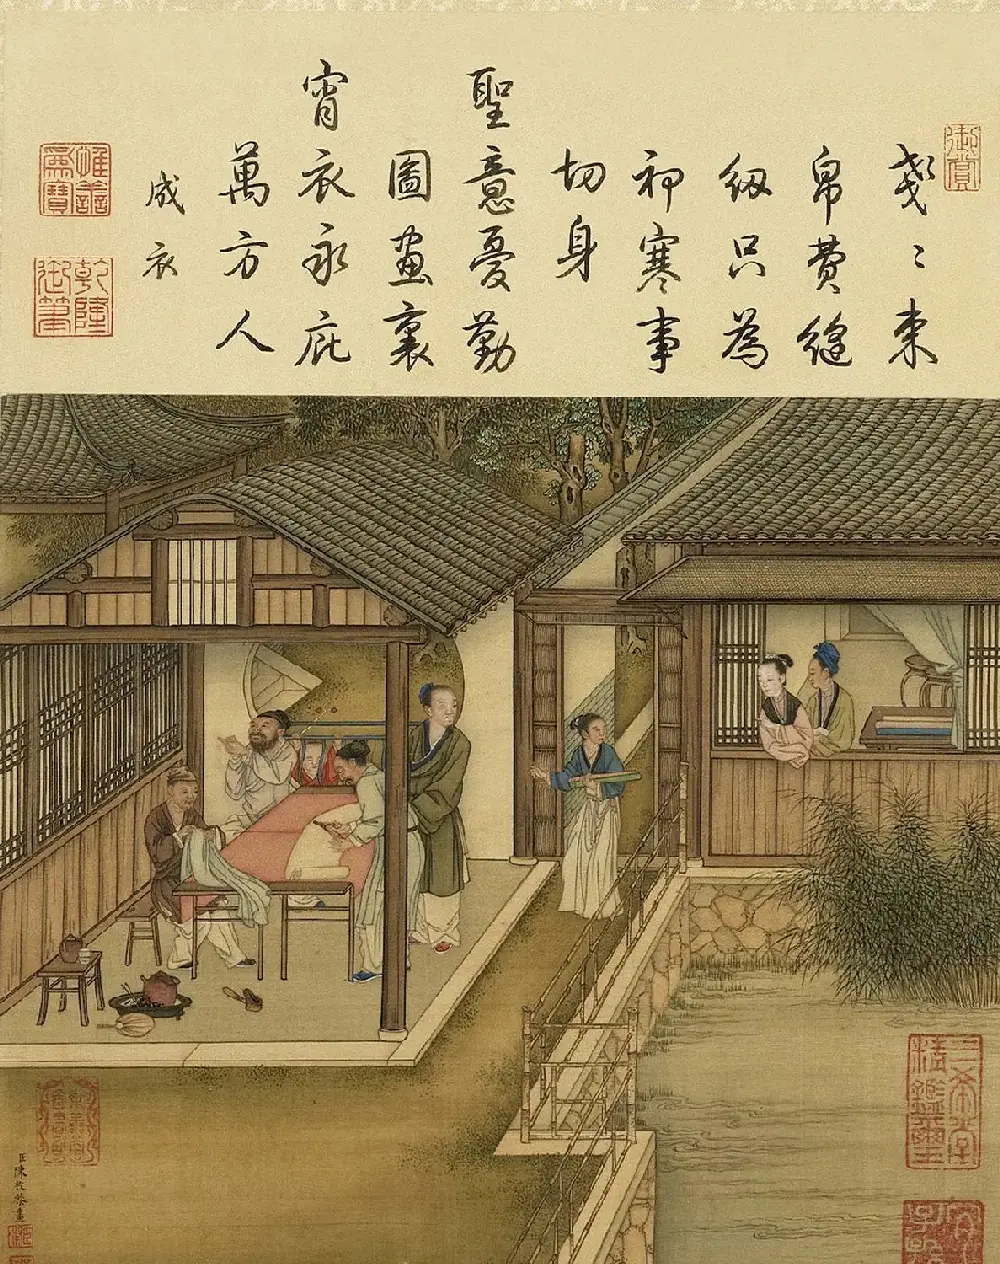 御賞
戔〻束
帛費縫
紉只為
祁寒事
切身
聖意憂勤
圖畫裏
宵衣永庇
萬方人
成衣
惟善為寶
乾隆御筆
三希堂精鑑璽
宜子孫
臣陳枚恭畫